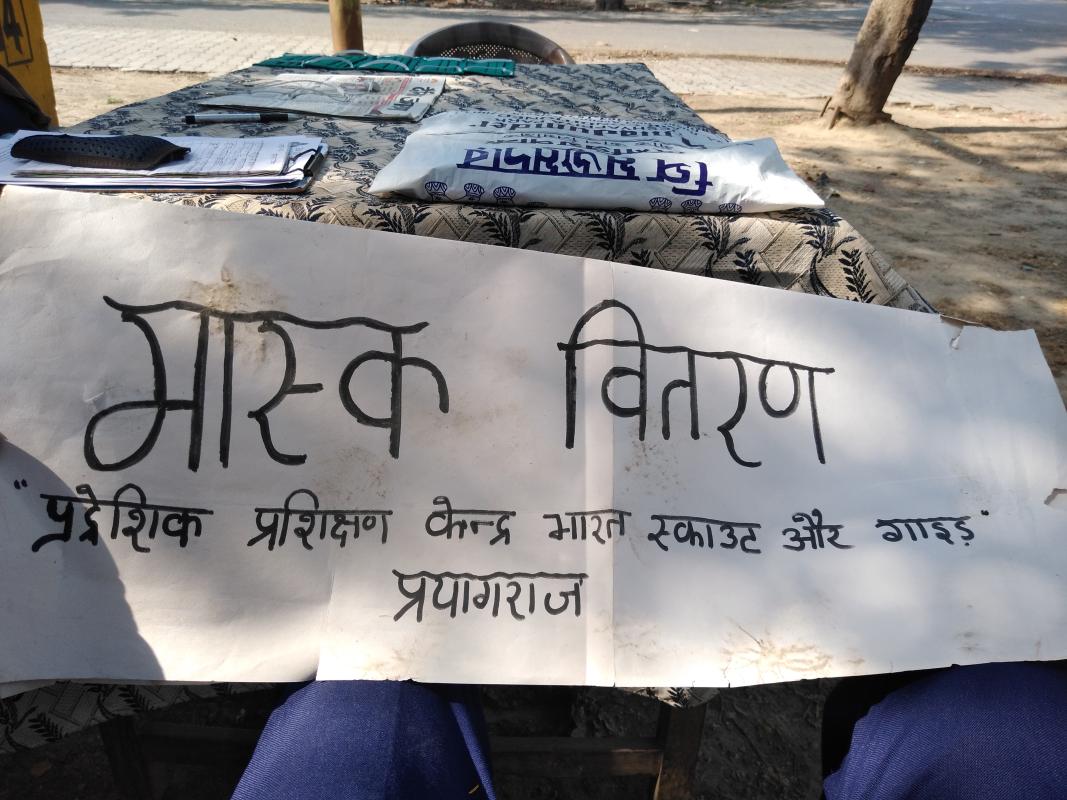 4
मास्क वितरण
"प्रदेशिक प्रशिक्षण केन्द्र भारत स्काउट और गाइड़"
प्रयागराज